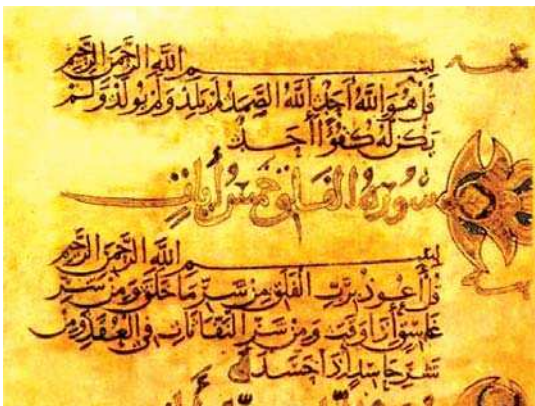 بسم الله الرحمن الرحيم
قل هو الله احد الله الصمد لم يلد ولم يولد ولم
يكن له كفوا أحد
سورة الفلق خمس آيات
بسم الله الرحمن الرحيم
قل أعوذ برب الفلق من شر ما خلق ومن شر
غاسق إذا وقب ومن شر النفاثات في العقد ومن
شر حاسد إذا حسد